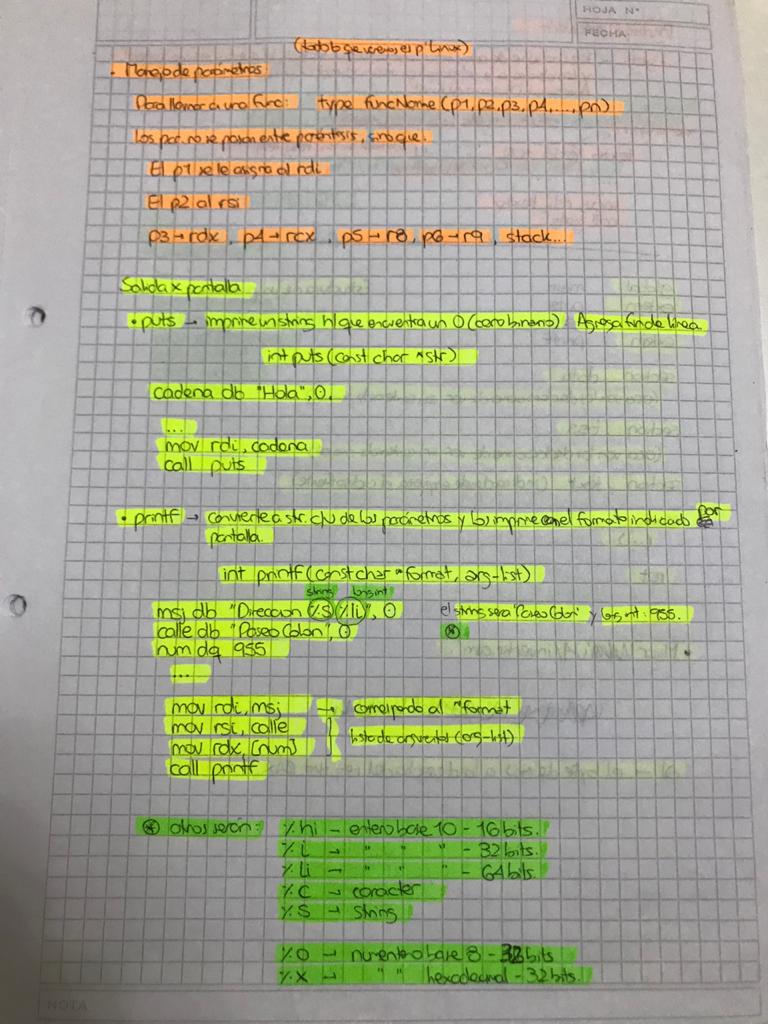 HOJA N°
FECHA
(todo lo que veremos es p' Linux)
• Manejo de parámetros
Para llamar a una func: type funcName (p1, p2, p3, p4, ..., pn)
Los par. no se pasan entre paréntesis, sino que:
El p1 se le asigna al rdi
El p2 al rsi
p3 → rdx, p4 → rcx, p5 → r8, p6 → r9, stack...
Salida x pantalla
• puts → imprime un string h/ que encuentra un 0 (cero binario). Agrega fin de línea
int puts (const char *str)
cadena db "Hola", 0.
...
mov rdi, cadena
call puts
• printf → convierte a str. c/u de los parámetros y los imprime con el formato indicado por
pantalla.
int printf (const char *format, arg-list)
string long int
msj db "Direccion %s %li", 0 el string sera "Paseo Colon" y long int: 955.
calle db "Paseo Colon", 0 ⊛
num dq 955
...
mov rdi, msj → corresponde al *format
mov rsi, calle
mov rdx, [num] lista de argumentos (arg-list)
call printf
⊛ otros serán: %hi → entero base 10 - 16 bits.
%i → " " " - 32 bits.
%li → " " " - 64 bits.
%c → caracter
%s → string
%o → num entero base 8 - 32 bits
%x → " " hexadecimal - 32 bits.
NOTA